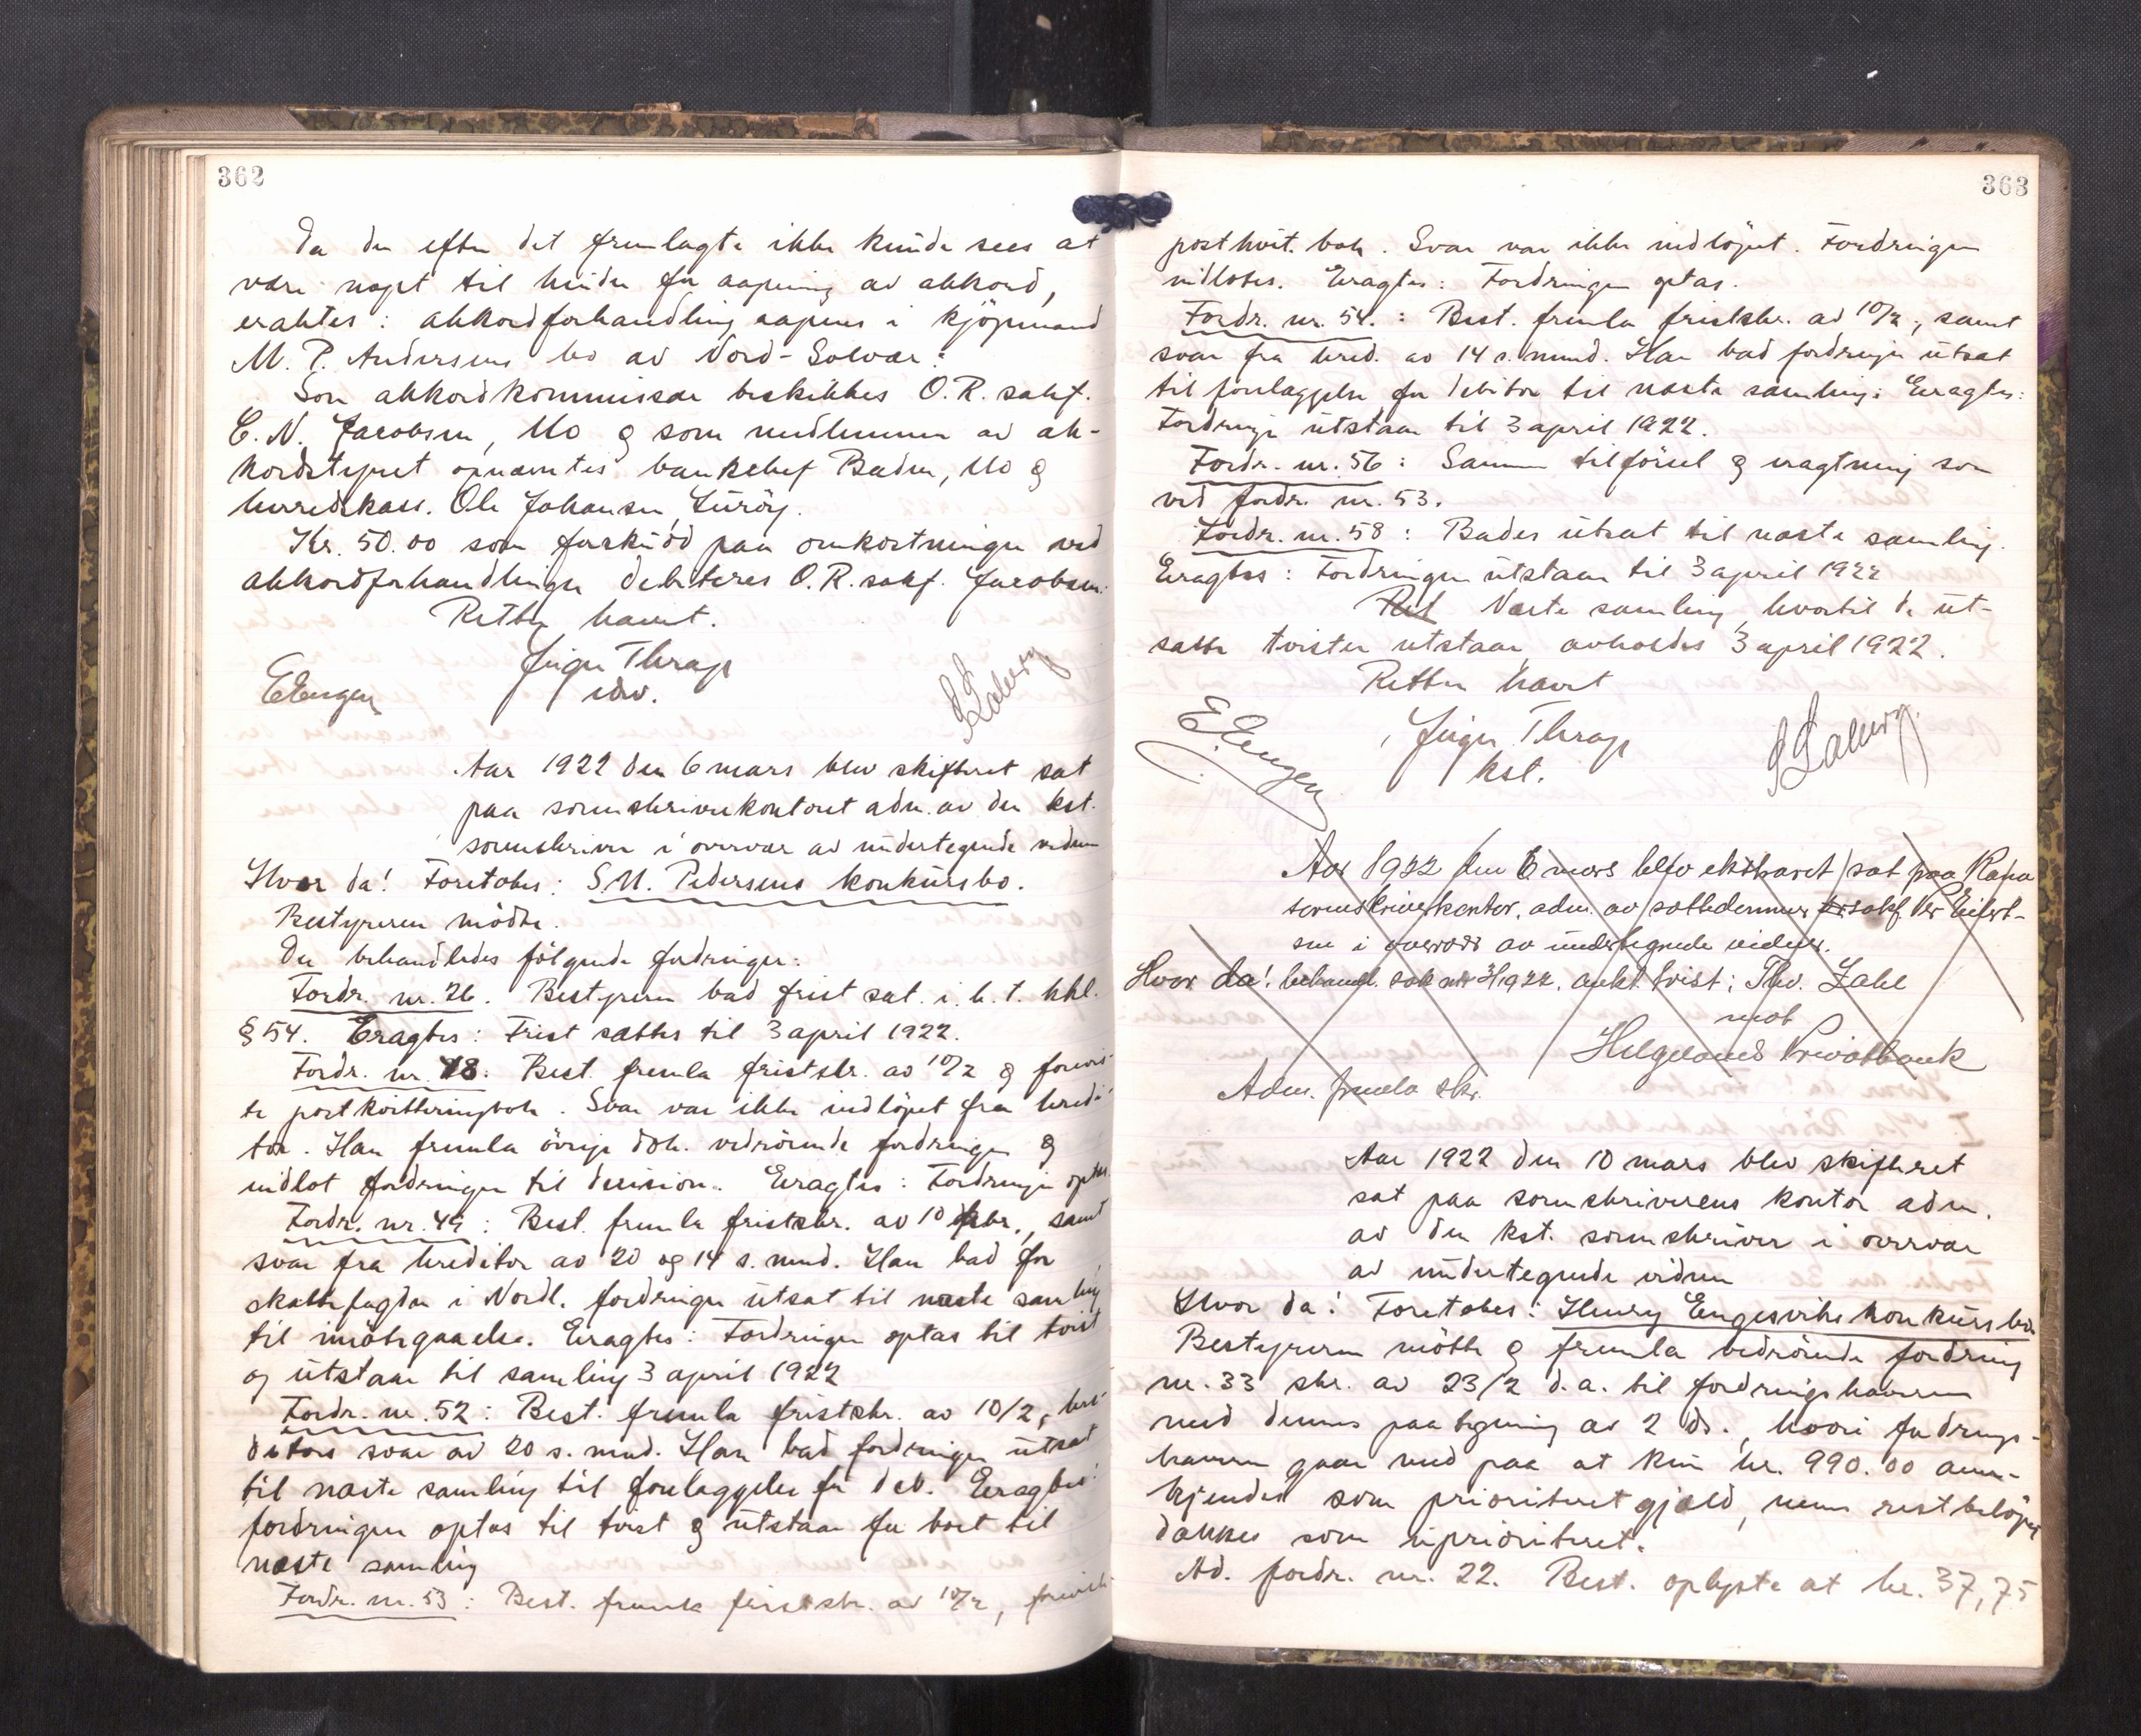 362
Da der efter det fremlagte ikke kunde sees at
være noget til hinder for aapning av akkord,
eraktes: akkordforhandling aapnes i kjöpmand
M. P. Andersens bo av Nord-Solvær.
Som akkordkommissær beskikkes O.R. sakf.
C. N. Jacobsen, Mo og som medlemmer av ak-
kordstyret opnævntes banksjef Baden, Mo og
herredskass. Ole Johansen, Luröy.
Kr. 50.00 som forskud paa omkostninger ved
akkordforhandlingen debiteres O.R. sakf. Jacobsen.
Retten hævet.
Jürgen Thrap
EEngen
Aar 1922 den 6 mars blev skifteret sat
paa sorenskriverkontoret adm. av den kst.
sorenskriver i overvær av undertegnede vidner
Hvor da! Foretokes: S.M. Pedersens konkursbo.
Bestyreren mödte.
Der behandledes fölgende fordringer:
Fordr. nr. 26. Bestyreren bad frist sat i. h. t. kkl.
§ 54. Eragtes: Frist sættes til 3 april 1922.
Fordr. nr. 48: Best. fremla fristskr. av 10/2 og forevis-
te postkvitteringsbok. Svar var ikke indlöpet fra kredi-
tor. Han fremla övrige dok. vedrörende fordringen og
indlot fordringen til decision. Eragtes: Fordringen optas.
Fordr. nr. 49: Best. fremla fristskr. av 10 febr., samt
svar fra kreditor av 20 og 14 s. mnd. Han bad for
skattefogden i Nordl. fordringen utsat til næste samling
til imötegaaelse. Eragtes: Fordringen optas til tvist
og utstaar til samling 3 april 1922
Fordr. nr. 52: Best. fremla fristskr. av 10/2, kre-
ditors svar av 20 s. mnd. Han bad fordringen utsat
til næste samling til forelæggelse for deb. Eragtes:
fordringen optas til tvist og utstaar for bort til
næste samling
Fordr. nr. 53: Best. fremla fristskr. av 10/2, foreviste
363
postkvit. bok. Svar var ikke indlöpet. Fordringen
indlotes. Eragtes: Fordringen optas.
Fordr. nr. 54.: Best. fremla fristskr. av 10/2, samt
svar fra kred. av 14 s. mnd. Han bad fordringen utsat
til forelæggelse for debitor til næste samling: Eragtes:
Fordringen utstaar til 3 april 1922.
Fordr. nr. 56: Samme tilförsel og eragtning som
ved fordr. nr. 53.
Fordr. nr. 58: Bades utsat til næste samling.
Eragtes: Fordringen utstaar til 3 april 1922
Ret Næste samling, hvortil de ut-
satte tvister utstaar, avholdes 3 april 1922.
Retten hævet
EEngen
Jürgen Thrap
kst.
Aar 1922 den 6 mars blev ekstraret sat paa Rana
sorenskriverkontor, adm. av sættedommer sakf. Per Eilert-
sen i overvær av undertegnede vidner.
Hvor da! behandl. sak nr 3/1922. tvist: Thv. Zahl
mot
Helgelands Privatbank
Adm. fremla skr.
Aar 1922 den 10 mars blev skifteret
sat paa sorenskriverens kontor adm.
av den kst. sorenskriver i overvær
av undertegnede vidner
Hvor da! Foretokes: Henry Engesviks konkursbo
Bestyreren mötte og fremla vedrörende fordring
nr. 33 skr. av 23/2 d.a. til fordringshaveren
med dennes paategning av 2 ds., hvori fordrings-
haveren gaar med paa at kun kr. 990.00 aner-
kjendes som prioritert gjæld, mens restbelöpet
dækkes som uprioriteret.
Ad. fordr. nr. 22. Best. oplyste at kr. 37,75